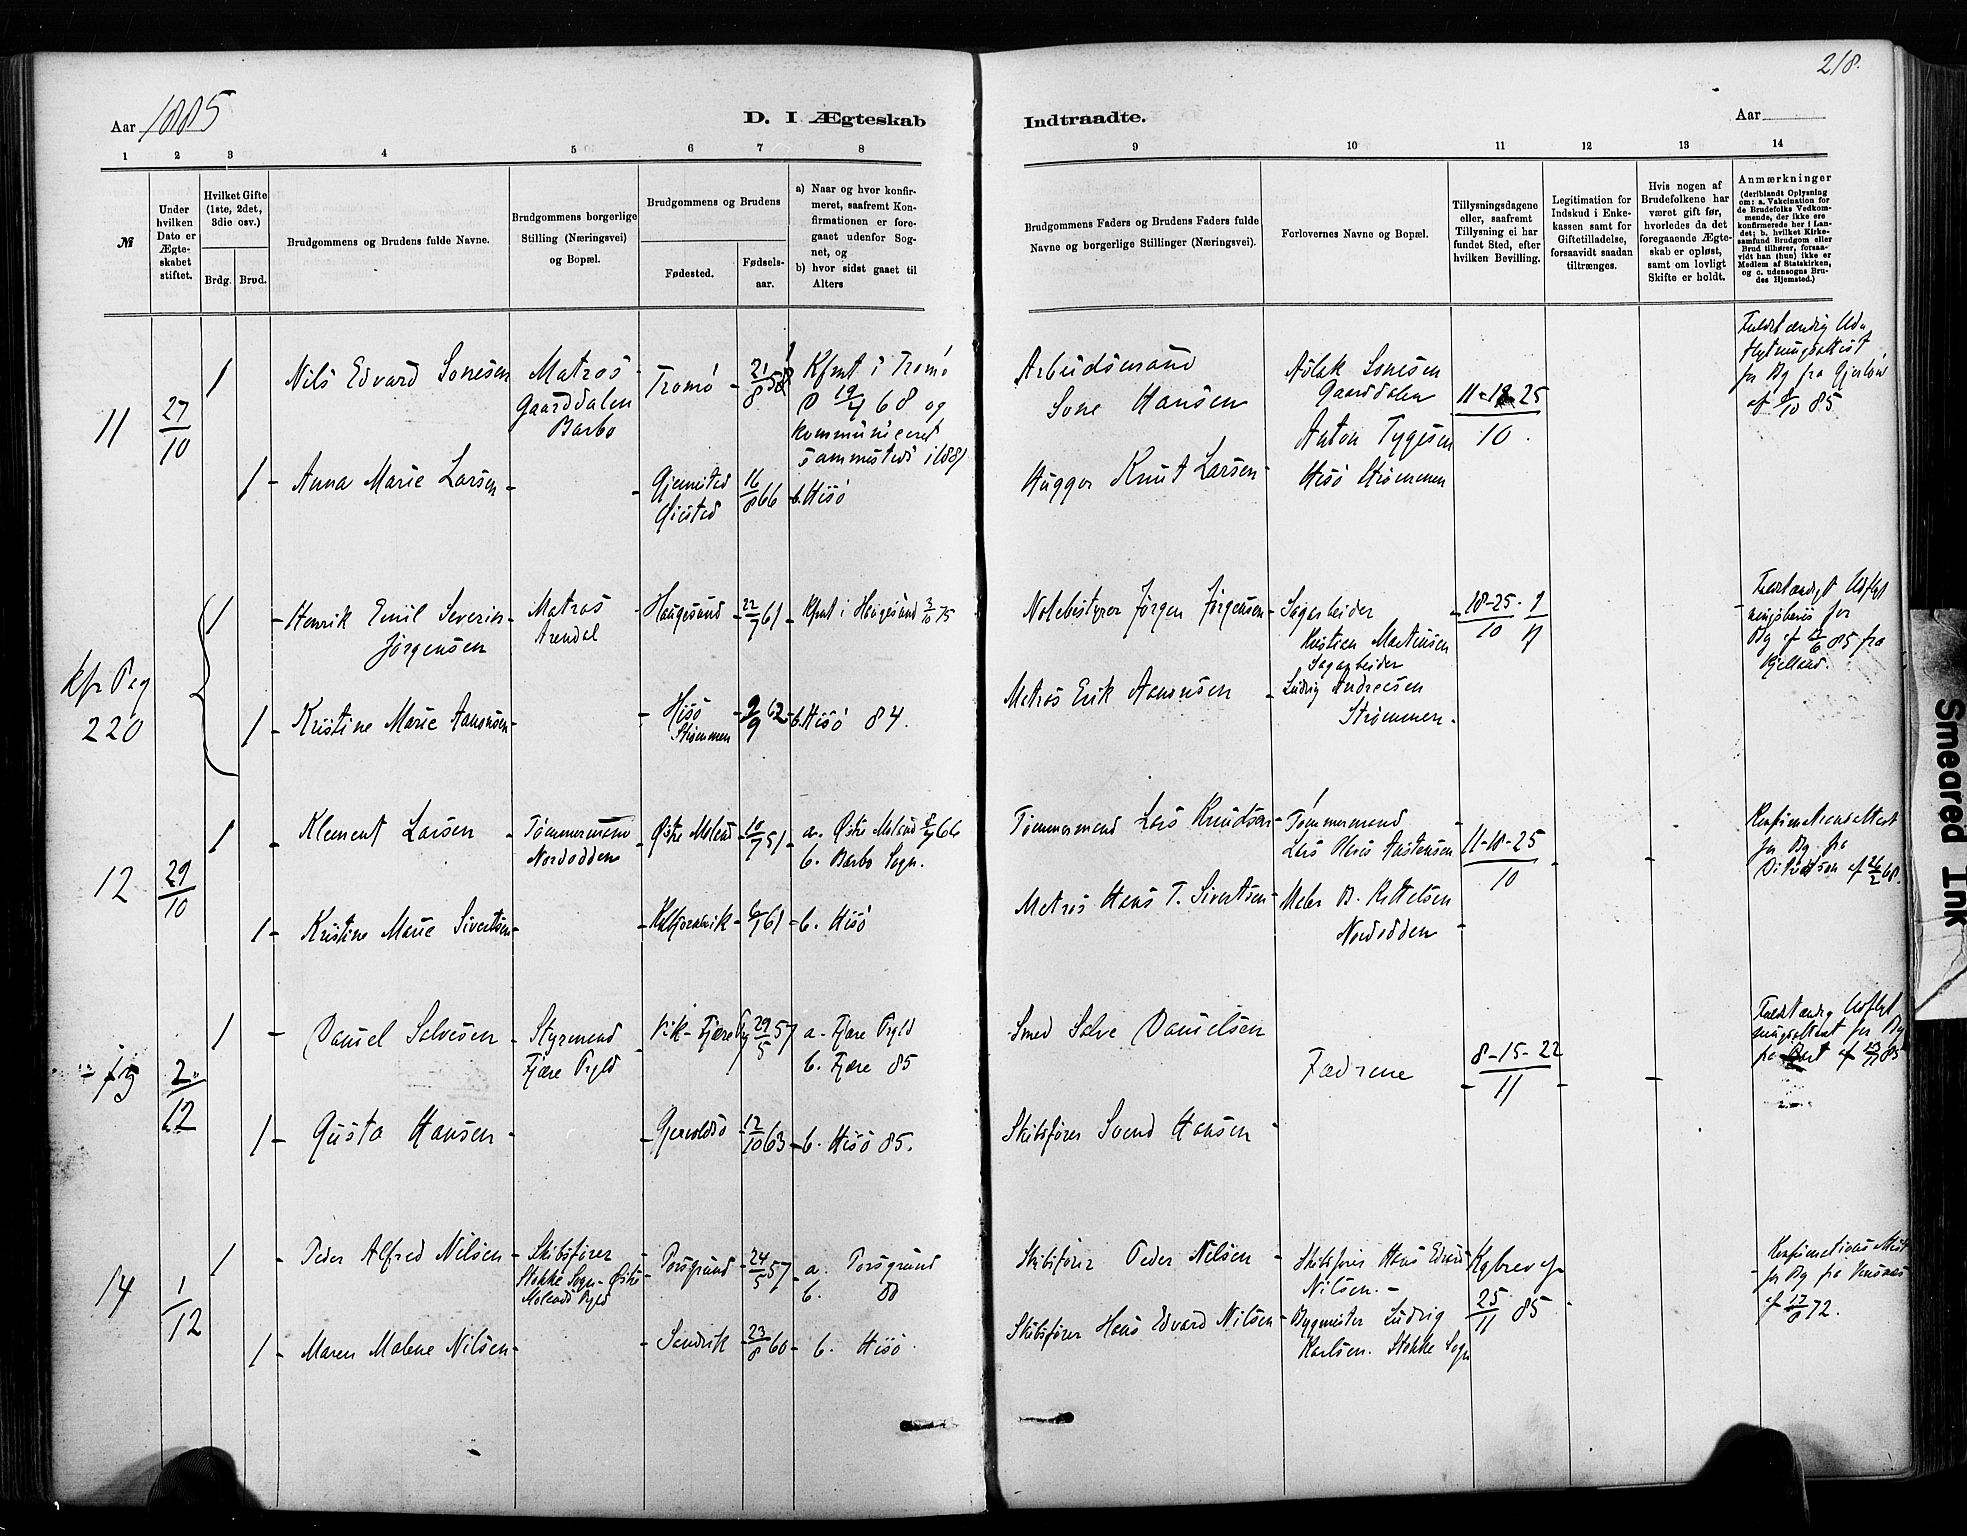 218.
Aar 1885
D. I Ægteskab
Indtraadte.
Aar
1 2 3 4 5 6 7 8 9 10 11 12 13 14
№
Under hvilken Dato er Ægteskabet stiftet.
Hvilket Gifte (1ste, 2det, 3die osv.)
Brdg. Brud.
Brudgommens og Brudens fulde Navne.
Brudgommens borgerlige Stilling (Næringsvei) og Bopæl.
Brudgommens og Brudens
Fødested.
Fødselsaar.
a) Naar og hvor konfirmeret, saafremt Konfirmationen er foregaaet udenfor Sognet, og
b) hvor sidst gaaet til Alters
Brudgommens Faders og Brudens Faders fulde Navne og borgerlige Stillinger (Næringsvei).
Forlovernes Navne og Bopæl.
Tillysningsdagene eller, saafremt Tillysning ei har fundet Sted, efter hvilken Bevilling.
Legitimation for Indskud i Enkekassen samt for Giftetilladelse, forsaavidt saadan tiltrænges.
Hvis nogen af Brudefolkene har været gift før, hvorledes da det foregaaende Ægteskab er opløst, samt om lovligt Skifte er holdt.
Anmærkninger
(deriblandt Oplysning om: a. Vakcination for de Brudefolks Vedkommende, der ikke ere konfirmerede her i Landet; b. hvilket Kirkesamfund Brudgom eller Brud tilhører, forsaavidt han (hun) ikke er Medlem af Statskirken, og c. udensogns Brudes Hjemsted.)
11
27/10
1
Nils Edvard Sonesen
Matros
Gaarddalen
Barbo
Tromø
21/8 58
Kfmt i Tromø
19/4 68 og
kommuniceret
sammesteds i 1881
Arbeidsmand
Sone Hansen
Aslak Sonesen
Gaarddalen
Anton Tygesen
Hisø Strømmen
11-18-25
10.
1 - Anna Marie Larsen
Gjemsted
Øiestad
16/8 66
b. Hisø
Hugger Knut Larsen
kfr Pag
220
1
Henrik Emil Severin
Jørgensen
Matros
Arendal
Haugesund
22/7 61
Kfmt i Haugesund 3/10 75
Notebestyrer Jørgen Jørgensen
Sagarbeider
Kristian Martinsen
Sagarbeider
Ludvig Andresen
Strømmen
18-25. 1
10 11
1 - Kristine Marie Aanonsen
Hisø
Strømmen
9/9 62
b. Hisø 84.
Matros Erik Aanonsen
12
29/10
1
Klement Larsen
Tømmermand
Nordodden
Østre Moland
10/7 51
a. Østre Moland
66
b. Barbo Sogn.
Tømmermand Lars Knudsen
Tømmermand
Lars Austensen
11-18-25
10
Konfirmationsattest
for Bg. fra
af 26/2 68.
1 - Kristine Marie Sivertsen
61
b. Hisø
Matros Hans T. Sivertsen
B. Kittelsen
Nordodden
2/12
1
Daniel Salvesen
Styrmand
Fjære Pgld
Vik - Fjære Pg
29/5 57
a. Fjære Pgld
b. Fjære 85
Smed Salve Danielsen
Fædrene
8-15-22
11
1 - Gusta Hansen
Gjervoldsø
12/10 63
b. Hisø 85.
Skibsfører Svend Hansen
14
1/12
1
Peder Alfred Nilsen
Skibsfører
Stokke Sogn - Østre
Molands Pgld
Porsgrund
24/5 57
a. Porsgrund
b.
Skibsfører Peder Nilsen
Skibsfører Hans Edvard
Nilsen.
Kgbrev af
25/11 85
Konfirmations Attest
for Bg fra
72.
1 - Maren Malene Nilsen
Sandvik
23/8 60
b. Hisø
Skibsfører Hans Edvard Nilsen
Bygmester Ludvig
Karlsen. Stokke Sogn
Smeared Ink